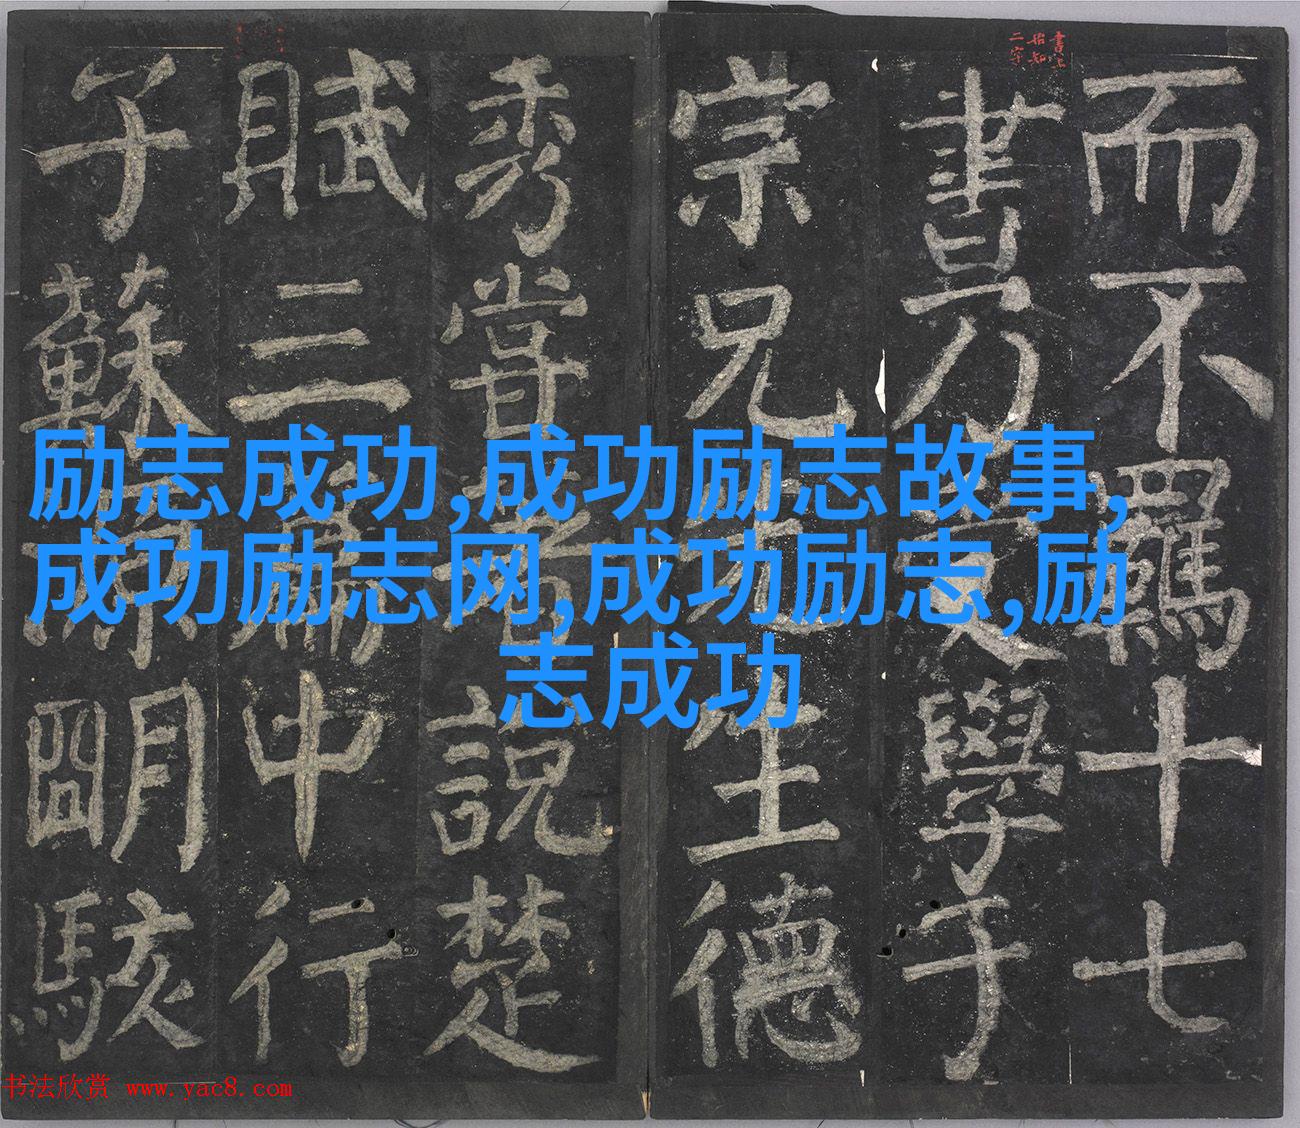 励志成功,成功励志故事,
成功励志网,成功励志,励
志成功
而不羈十七
書乃學于
宗兄生德
秀嘗說楚
賦三中行
子蘇朙駭
书法欣赏 www.yac8.com